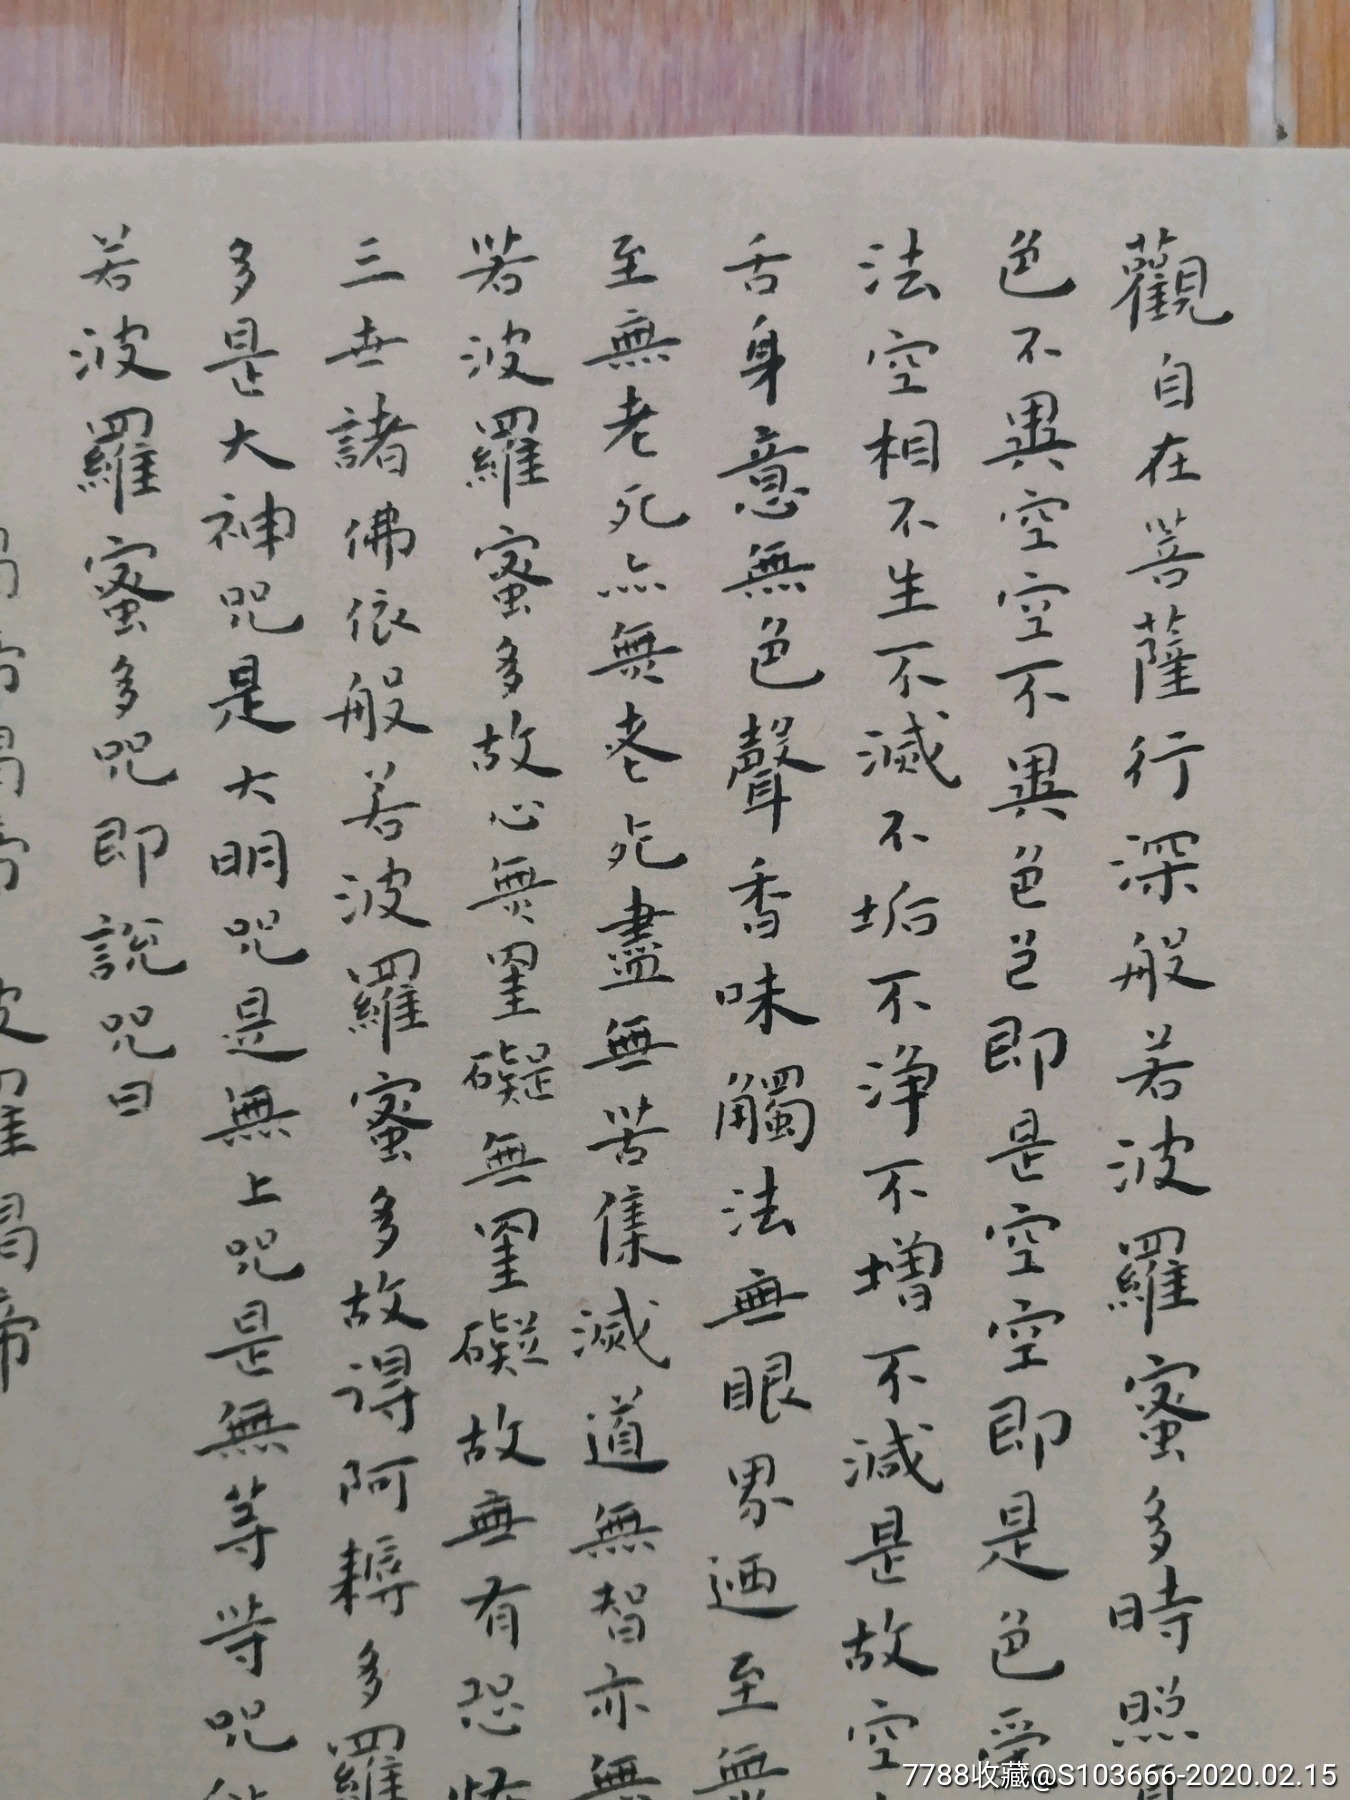 觀自在菩薩行深般若波羅蜜多時照
色不異空空不異色色即是空空即是色受
法空相不生不滅不垢不淨不增不減是故空
舌身意無色聲香味觸法無眼界迺至無
至無老死亦無老死盡無苦集滅道無智亦無
若波羅蜜多故心無罣礙無罣礙故無有恐怖
三世諸佛依般若波羅蜜多故得阿耨多羅
多是大神咒是大明咒是無上咒是無等等咒能
若波羅蜜多咒即說咒曰
揭帝揭帝 波羅揭帝
7788收藏@S103666-2020.02.15